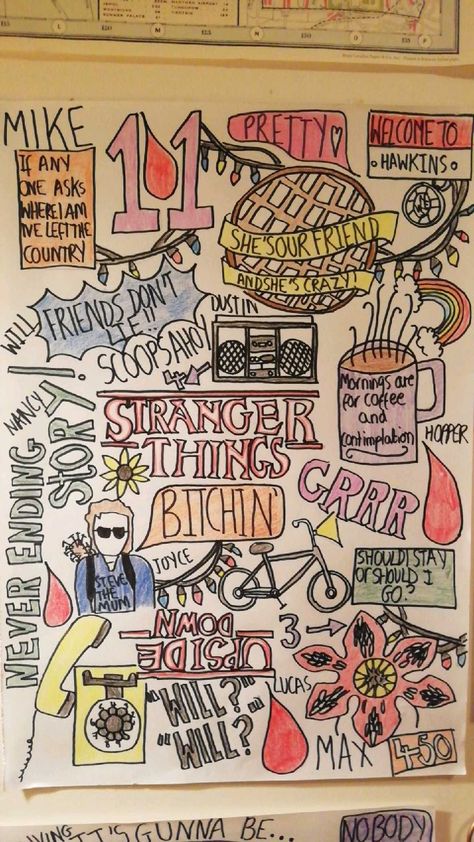 MIKE
11
PRETTY
WELCOME TO
HAWKINS
IF ANY
ONE ASKS
WHERE I AM
I'VE LEFT THE
COUNTRY
SHE'S OUR FRIEND
AND SHE'S CRAZY!
WILL
FRIENDS DON'T
LIE"
DUSTIN
SCOOPS AHOY
4
Mornings are
for coffee
and
contimplation
HOPPER
NANCY
NEVER ENDING
STORY!
STRANGER
THINGS
GRRR
BITCHIN'
JOYCE
STEVE
THE
MUM
SHOULD I STAY
OR SHOULD I
GO?
UPSIDE
DOWN
3
"WILL?"
"WILL?
LUCAS
MAX
450
IT'S GUNNA BE...
NOBODY